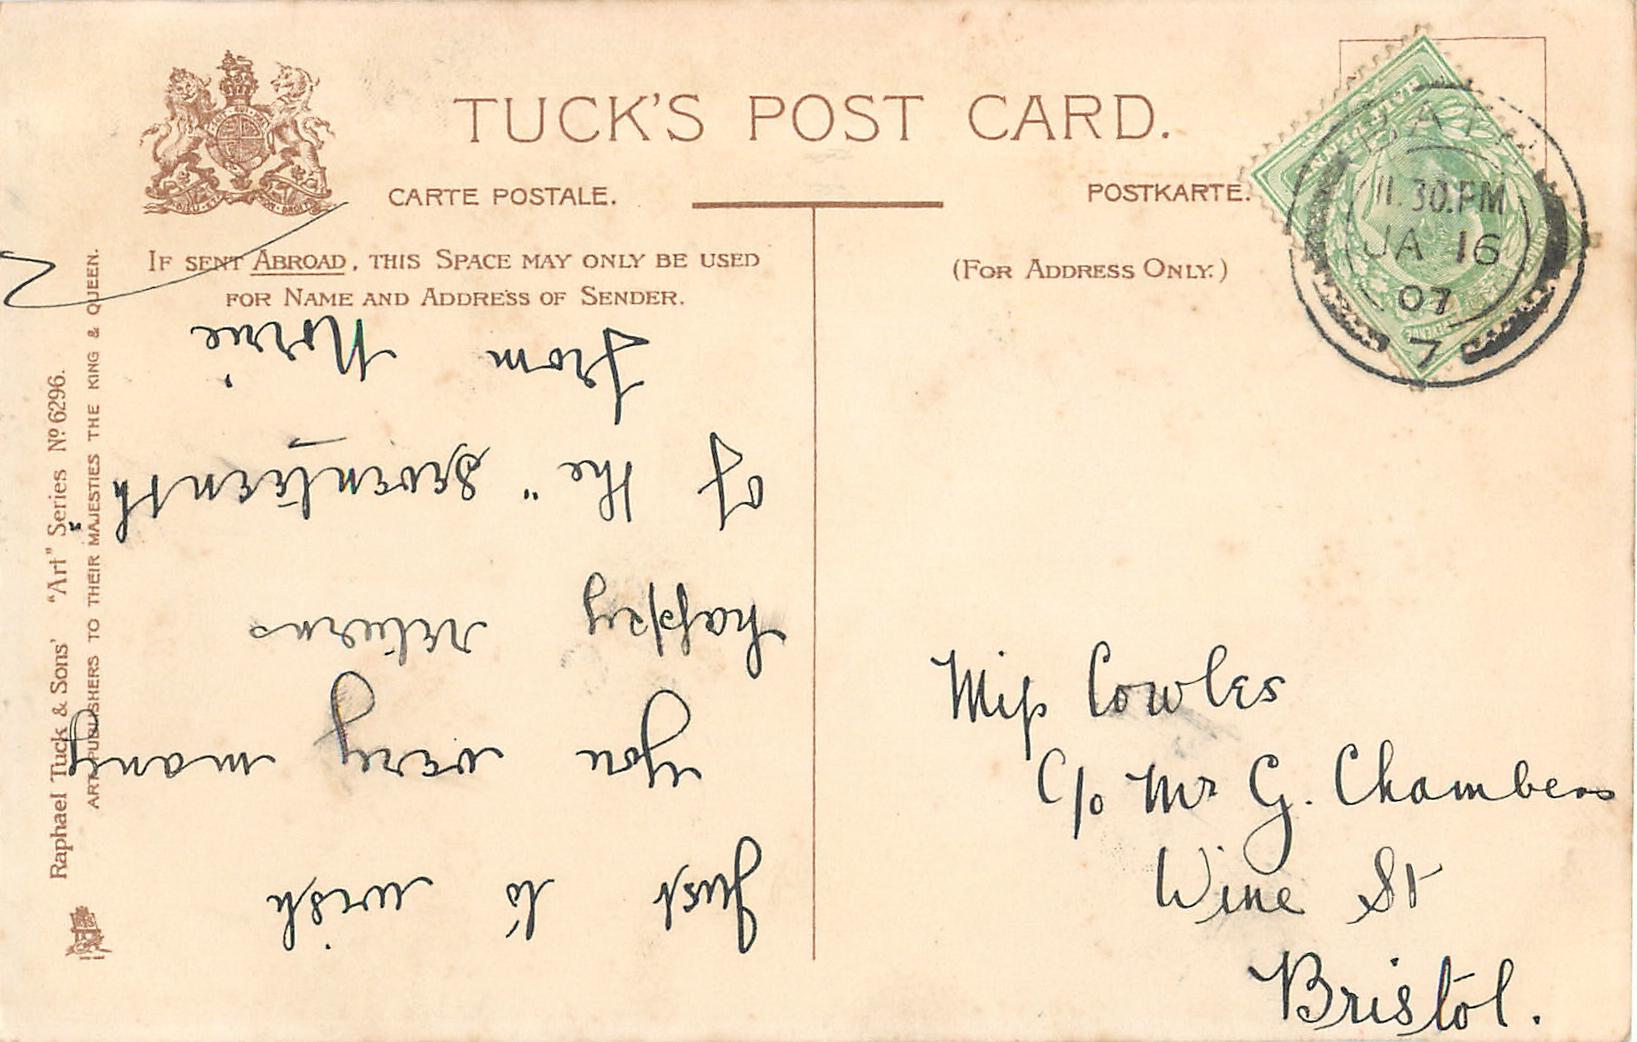 TUCK'S POST CARD.
CARTE POSTALE.
POSTKARTE.
IF SENT ABROAD, THIS SPACE MAY ONLY BE USED
FOR NAME AND ADDRESS OF SENDER.
(FOR ADDRESS ONLY.)
Raphael Tuck & Sons' "Art" Series No 6296.
ART PUBLISHERS TO THEIR MAJESTIES THE KING & QUEEN.
BATH
11.30.PM
JA 16
07
7
Just to wish
you very many
happy returns
of the "Seventeenth"
from Norrie
Miss Cowles
C/o Mr G. Chambers
Wine St
Bristol.